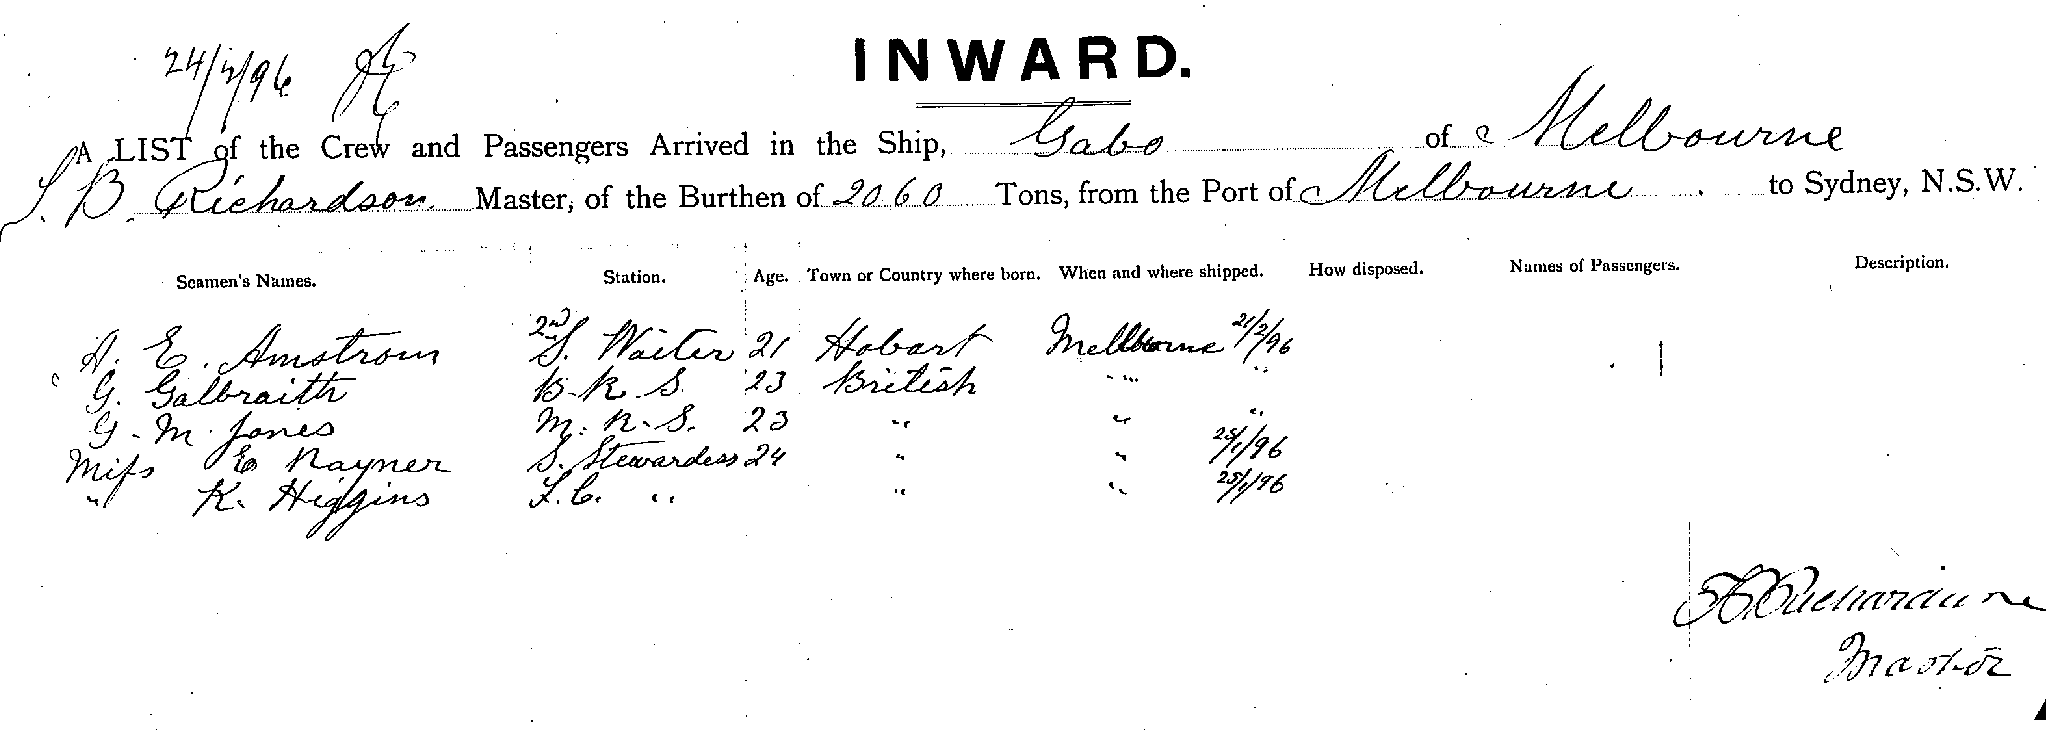 INWARD.
24/2/96
A LIST of the Crew and Passengers Arrived in the Ship, Gabo of Melbourne
S. B. Richardson Master, of the Burthen of 2060 Tons, from the Port of Melbourne to Sydney, N.S.W.
Seamen's Names. Station. Age. Town or Country where born. When and where shipped. How disposed. Names of Passengers. Description.
A. E. Amstrom 2nd S. Waiter 21 Hobart Melbourne 21/2/96
G. Galbraith B. R. S. 23 British " "
G. M. Jones M. R. S. 23 " " "
Miss E Rayner S. Stewardess 24 " " 25/1/96
" K. Higgins F. C. " " " 25/1/96
Richardson
Master